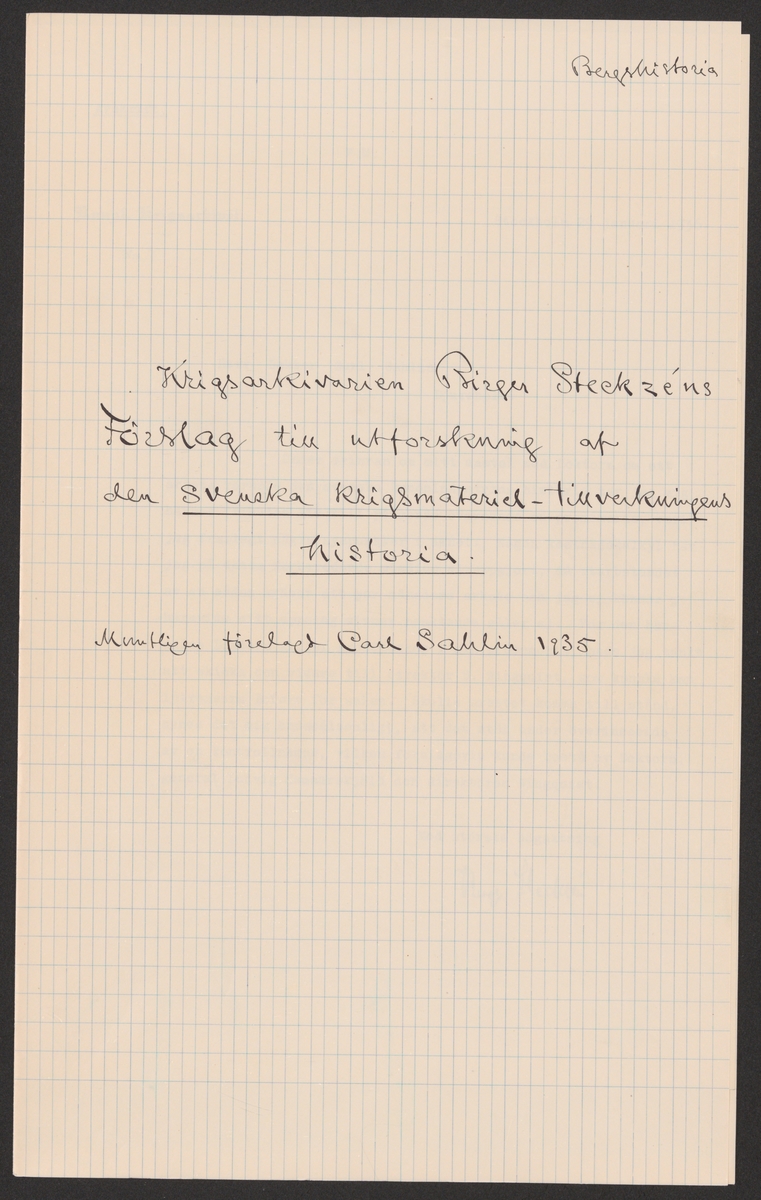 Bergshistoria
Krigsarkivarien Birger Steckzéns
Förslag till utforskning af
den svenska krigsmateriel-tillverkningens
historia.
Muntligen förelagt Carl Sahlin 1935.